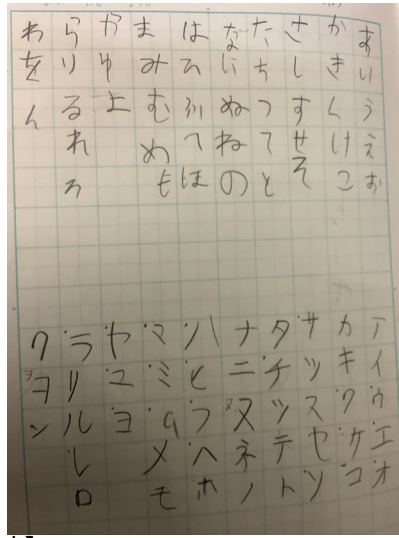 あいうえお
かきくけこ
さしすせそ
たちつてと
なにぬねの
はひふへほ
まみむめも
やゆよ
らりるれろ
わをん
アイウエオ
カキクケコ
サツスセソ
タチツテト
ナニヌネノ
ハヒフヘホ
マミムメモ
ヤユヨ
ラリルレロ
ワヲン